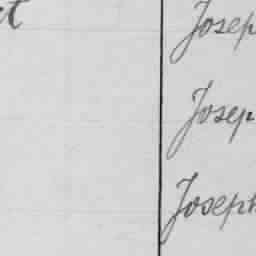 Josep
Josep
Joseph